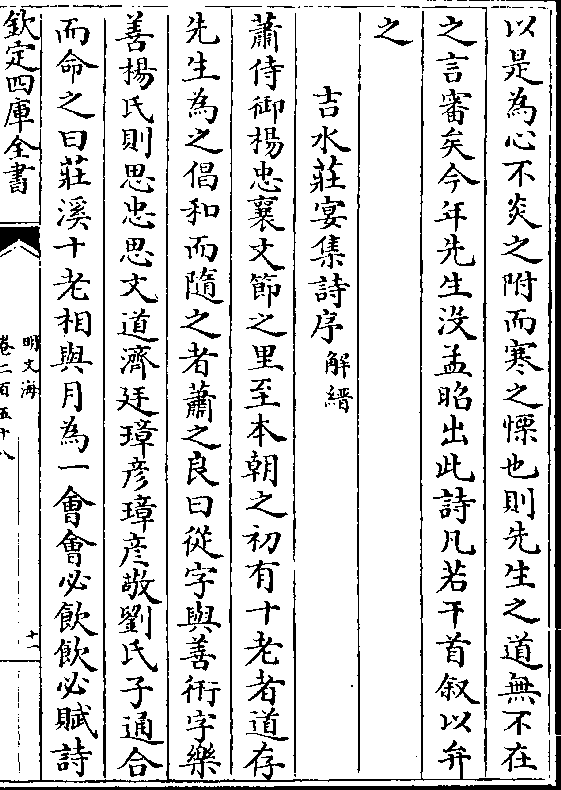 以是為心不炎之附而寒之慄也則先生之道無不在
之言審矣今年先生沒孟昭出此詩凡若干首叙以弁
之
吉水莊宴集詩序 解縉
蕭侍御楊忠襄文節之里至本朝之初有十老者道存
先生為之倡和而隨之者蕭之良曰從字與善術字樂
善楊氏則思忠思文道濟廷璋彦璋彦敬劉氏子通合
而命之曰莊溪十老相與月為一會會必飲飲必賦詩
欽定四庫全書
明文海
卷二百五十八
十一